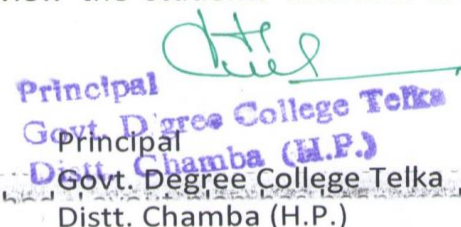 Principal
Govt. D'gree College Telka
Distt. Chamba (H.P.)
Principal
Govt. Degree College Telka
Distt. Chamba (H.P.)